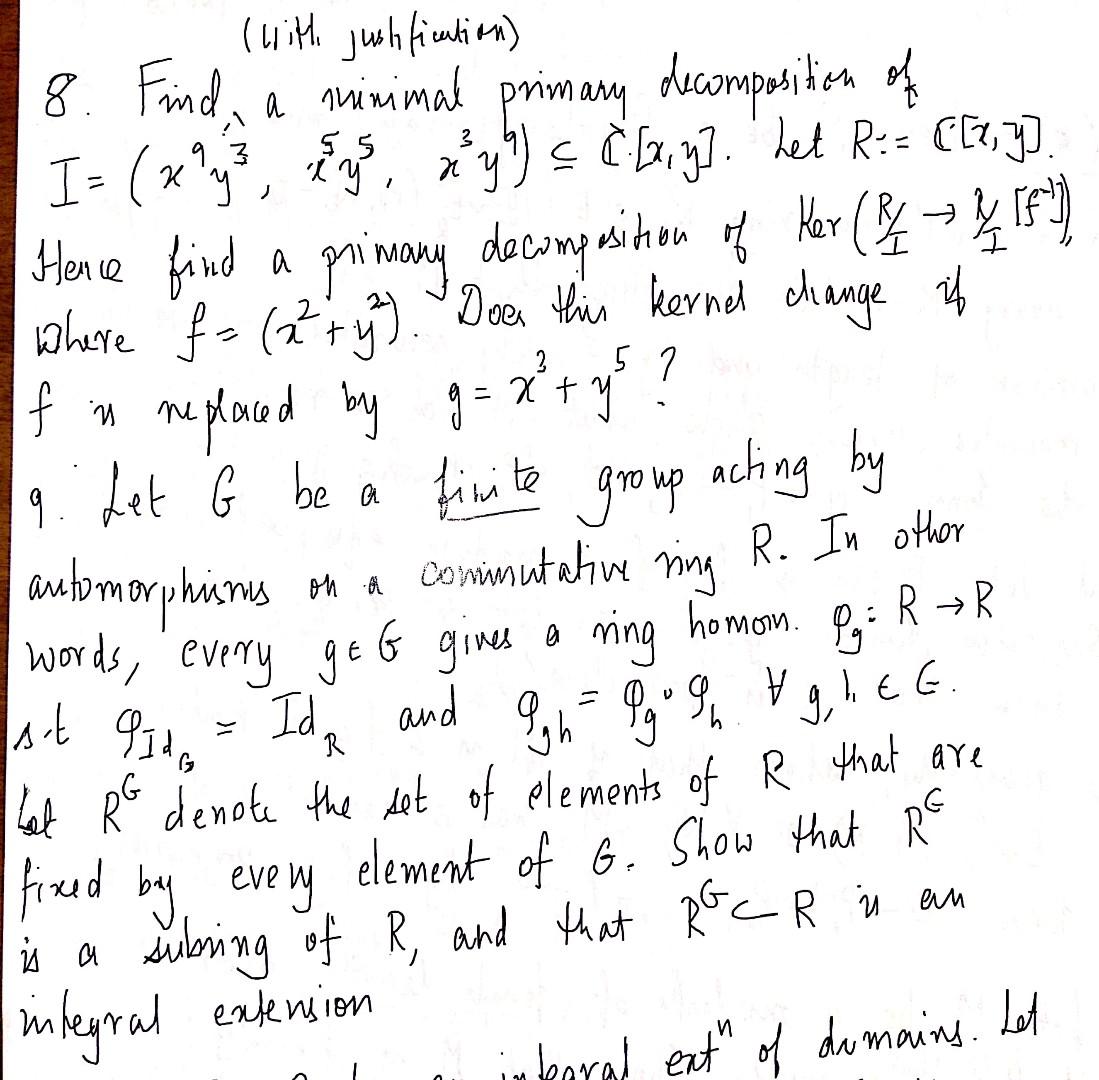 (with justification)
8. Find a minimal primary decomposition of
I = (x⁹y³, x⁵y⁵, x³y⁹) ⊆ ℂ[x,y]. Let R := ℂ[x,y].
Hence find a primary decomposition of Ker (R/I → R/I [f⁻¹]),
where f = (x² + y²). Does this kernel change if
f is replaced by g = x³ + y⁵ ?
9. Let G be a finite group acting by
automorphisms on a commutative ring R. In other
words, every g ∈ G gives a ring homom. φ_g : R → R
s.t φ_{Id_G} = Id_R and φ_{gh} = φ_g ∘ φ_h ∀ g, h ∈ G.
Let R^G denote the set of elements of R that are
fixed by every element of G. Show that R^G
is a subring of R, and that R^G ⊂ R is an
integral extension
integral extⁿ of domains. Let